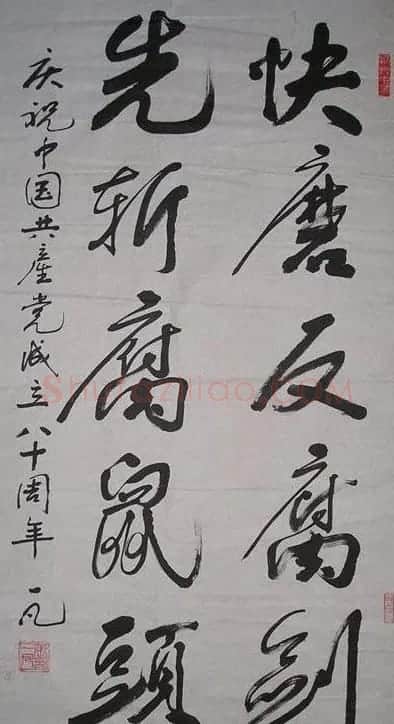 快磨反腐剑
先斩腐鼠頭
庆祝中国共產党成立八十周年 一凡